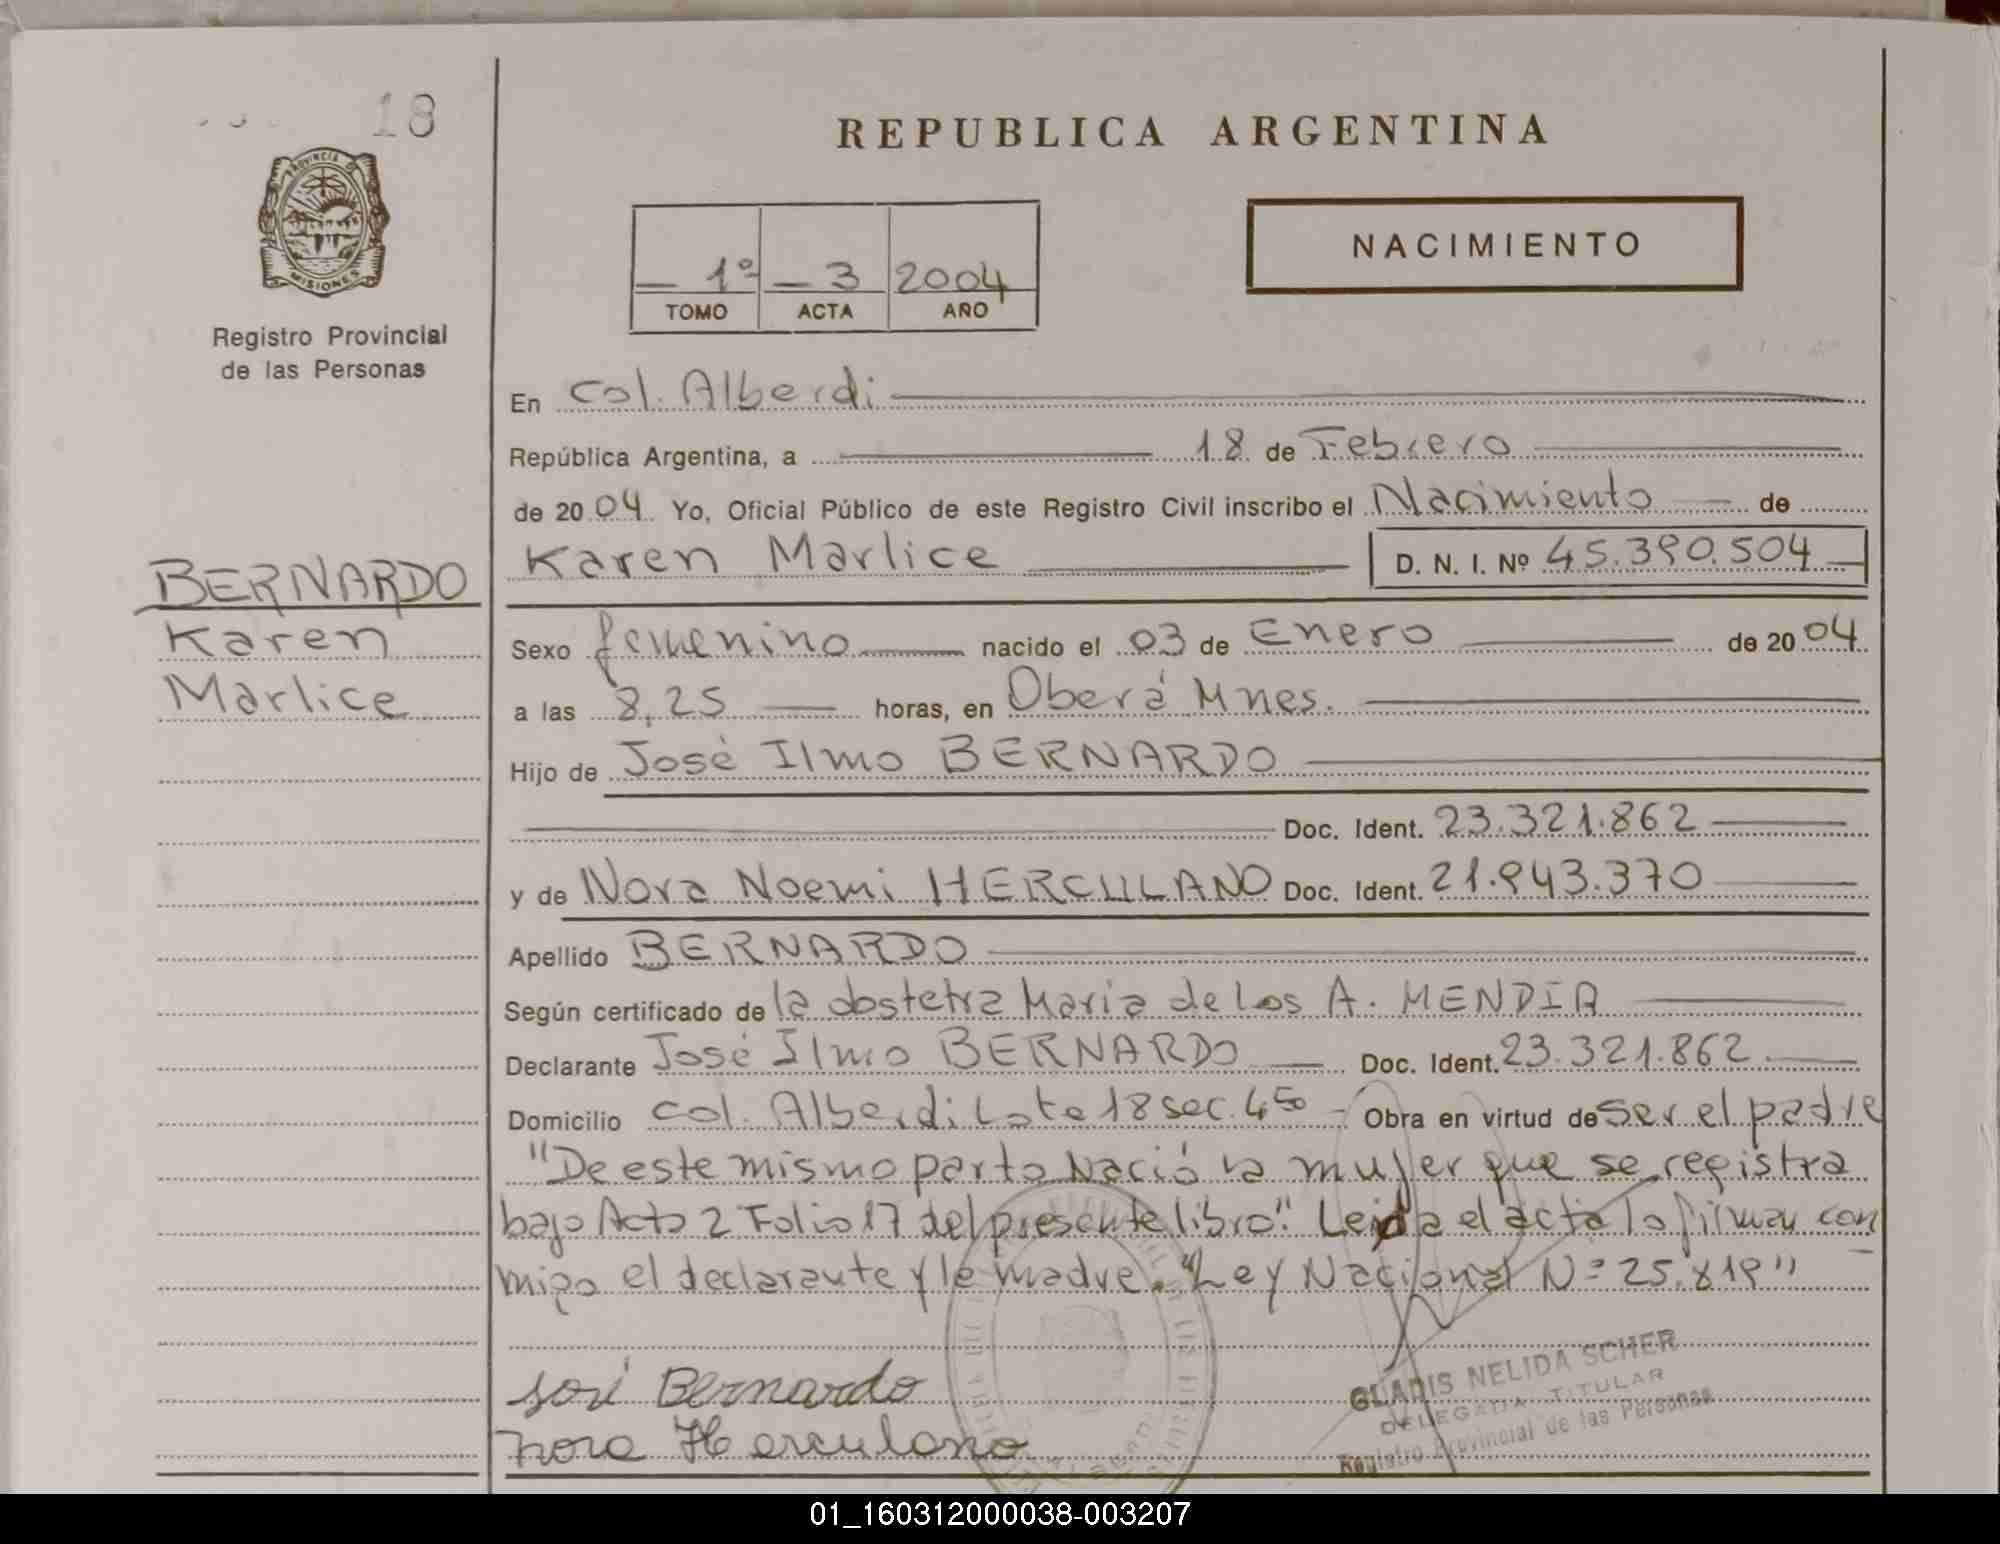 18
REPUBLICA ARGENTINA
PROVINCIA DE
MISIONES
Registro Provincial
de las Personas
1º 3 2004
TOMO ACTA AÑO
NACIMIENTO
En Col. Alberdi
República Argentina, a 18 de Febrero
de 2004 Yo, Oficial Público de este Registro Civil inscribo el Nacimiento de
Karen Marlice D. N. I. Nº 45.390.504
BERNARDO
Karen
Marlice
Sexo femenino nacido el 03 de Enero de 2004
a las 8,25 horas, en Oberá Mnes.
Hijo de José Ilmo BERNARDO
Doc. Ident. 23.321.862
y de Nora Noemi HERCULANO Doc. Ident. 21.943.370
Apellido BERNARDO
Según certificado de la obstetra Maria de los A. MENDIA
Declarante José Ilmo BERNARDO Doc. Ident. 23.321.862
Domicilio Col. Alberdi Lote 18 sec. 4 Obra en virtud de ser el padre
"De este mismo parto Nació la mujer que se registra
bajo Acta 2 Folio 17 del presente libro". Leida el acta la firman con
migo el declarante y la madre. "Ley Nacional Nº 25.819"
José Bernardo
Nora Herculano
GLADIS NELIDA SCHER
DELEGADA TITULAR
Registro Provincial de las Personas
01_160312000038-003207